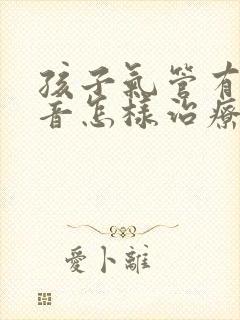 孩子氣管有
音怎樣治療
愛卜離